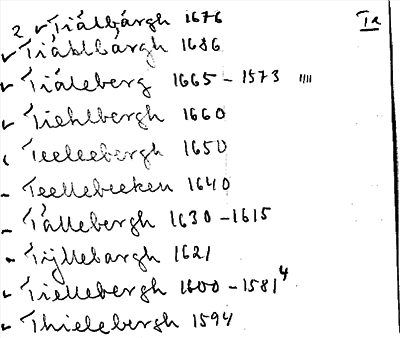 2 Tiälbärgh 1676 Ia
Tiählbärgh 1686
Tiäleberg 1665 - 1573 ıııı
Tiehlbergh 1660
Teeleebergh 1650
Teellebecken 1640
Tällebergh 1630 - 1615
Tÿllebargh 1621
Tiellebergh 1600 - 1581⁴
Thielebergh 1594